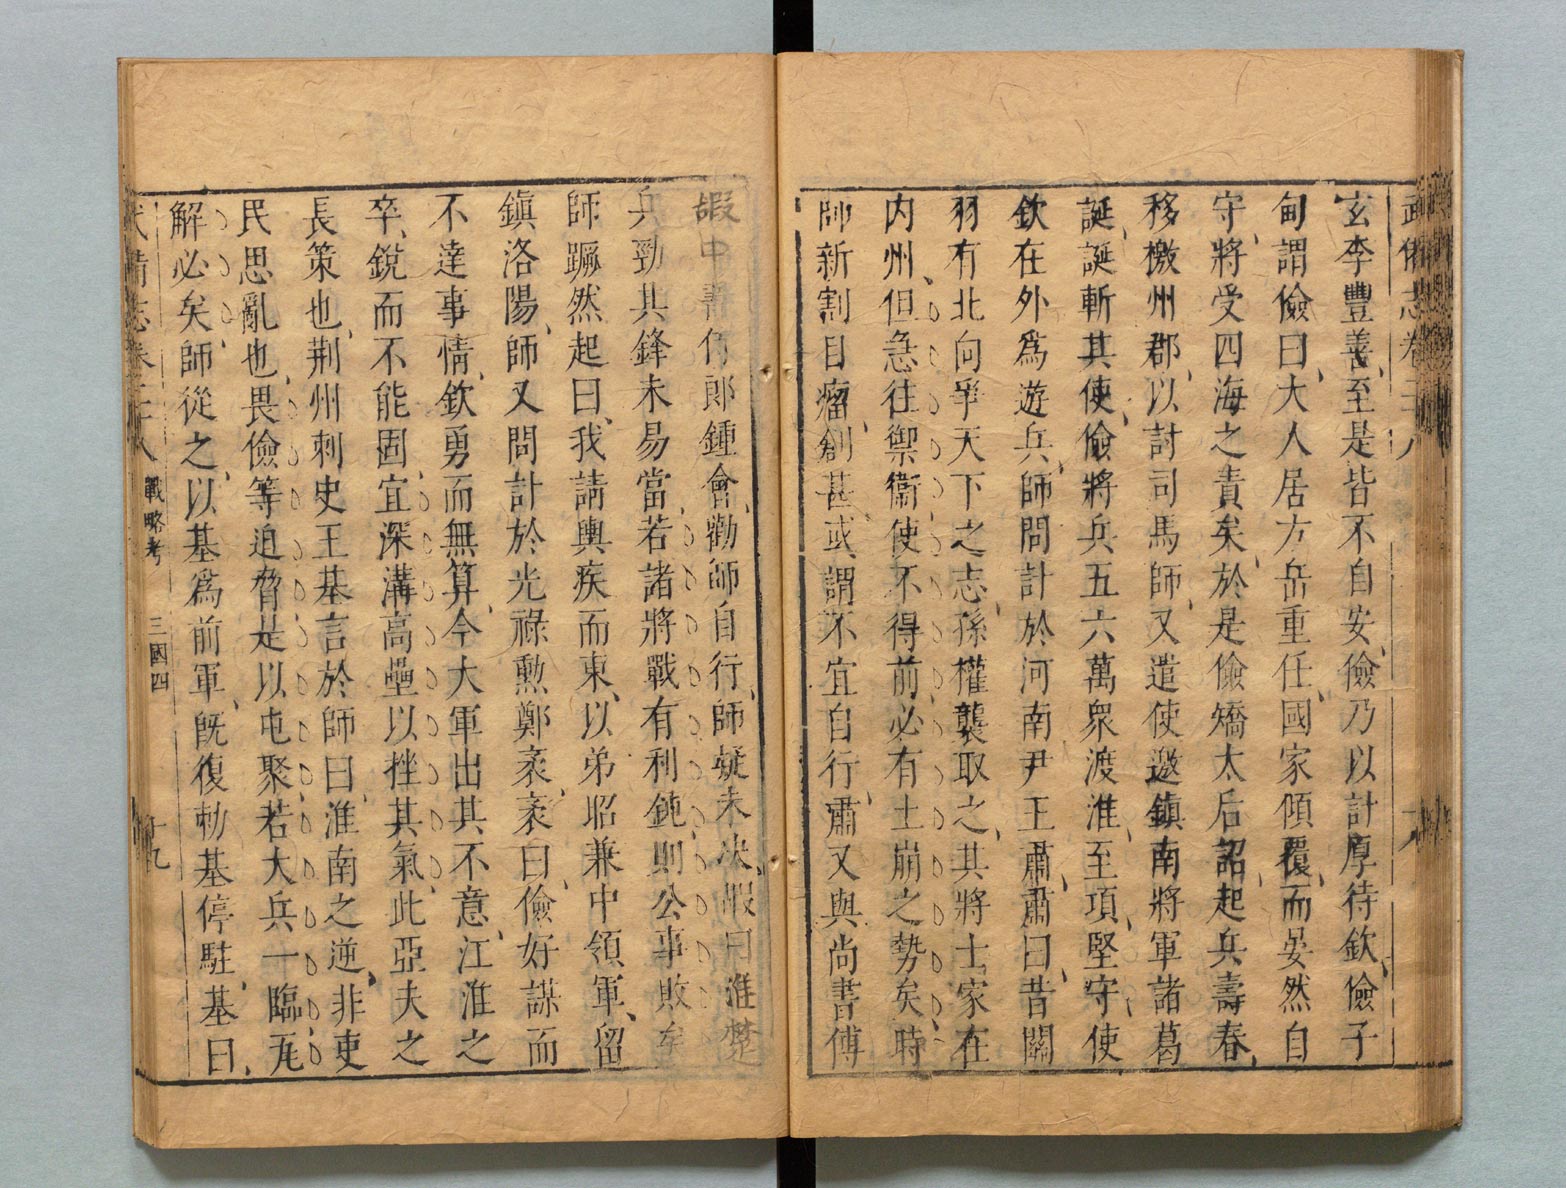 武備志卷二十八
玄李豐善至是皆不自安儉乃以計厚待欽儉子
甸謂儉曰大人居方岳重任國家傾覆而晏然自
守將受四海之責矣於是儉矯太后詔起兵壽春
移檄州郡以討司馬師又遣使邀鎮南將軍諸葛
誕誕斬其使儉將兵五六萬衆渡淮至項堅守使
欽在外爲遊兵師問計於河南尹王肅肅曰昔關
羽有北向爭天下之志孫權襲取之其將士家在
内州但急往禦衞使不得前必有土崩之勢矣時
師新割目瘤創甚或謂不宜自行肅又與尚書傅
嘏中書侍郎鍾會勸師自行師疑未決嘏曰淮楚
兵勁其鋒未易當若諸將戰有利鈍則公事敗矣
師蹶然起曰我請輿疾而東以弟昭兼中領軍留
鎮洛陽師又問計於光祿勲鄭袤袤曰儉好謀而
不達事情欽勇而無算今大軍出其不意江淮之
卒銳而不能固宜深溝高壘以挫其氣此亞夫之
長策也荆州刺史王基言於師曰淮南之逆非吏
民思亂也畏儉等迫脅是以屯聚若大兵一臨瓦
解必矣師從之以基爲前軍既復勑基停駐基曰
武備志卷二十八 戰略考 三國四 十九